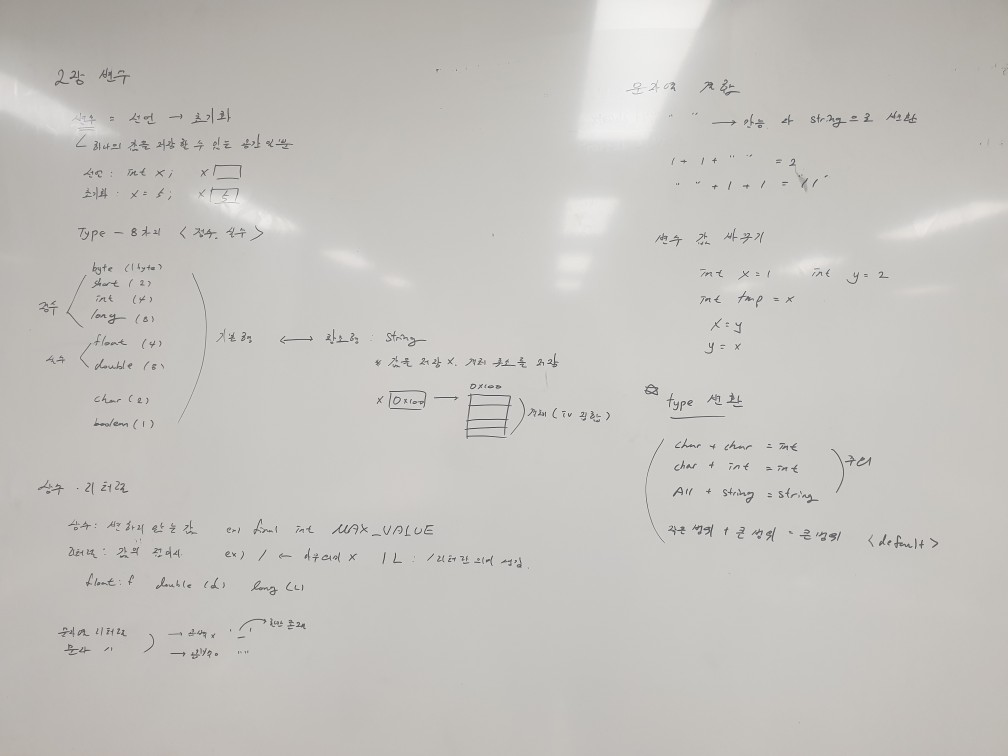 2장 변수
변수 = 선언 → 초기화
하나의 값을 저장할 수 있는 공간
선언 : int x; x
초기화 : x = 5; x 5
Type - 8가지 < 정수, 실수 >
정수
byte (1byte)
short (2)
int (4)
long (8)
실수
float (4)
double (8)
char (2)
boolean (1)
기본형 ←→ 참조형 : string
* 값을 저장 X, 객체 주소를 저장
x 0x100 → 0x100 객체 (iv 관함)
상수 · 리터럴
상수 : 변하지 않는 값 ex) final int MAX_VALUE
리터럴 : 값의 ex) 1 ← X 1L : 리터럴
float : f double (d) long (L)
문자열 리터럴
문자 "
→ X ' '
→ " "
문자열 결합
" " → 만능 다 string으로 변환
1 + 1 + " " = 2
" " + 1 + 1 = "11"
변수 값 바꾸기
int x = 1 int y = 2
int tmp = x
x = y
y = x
☆ type 변환
char + char = int
char + int = int
All + string = string
주의
작은 범위 + 큰 범위 = 큰 범위 <default>